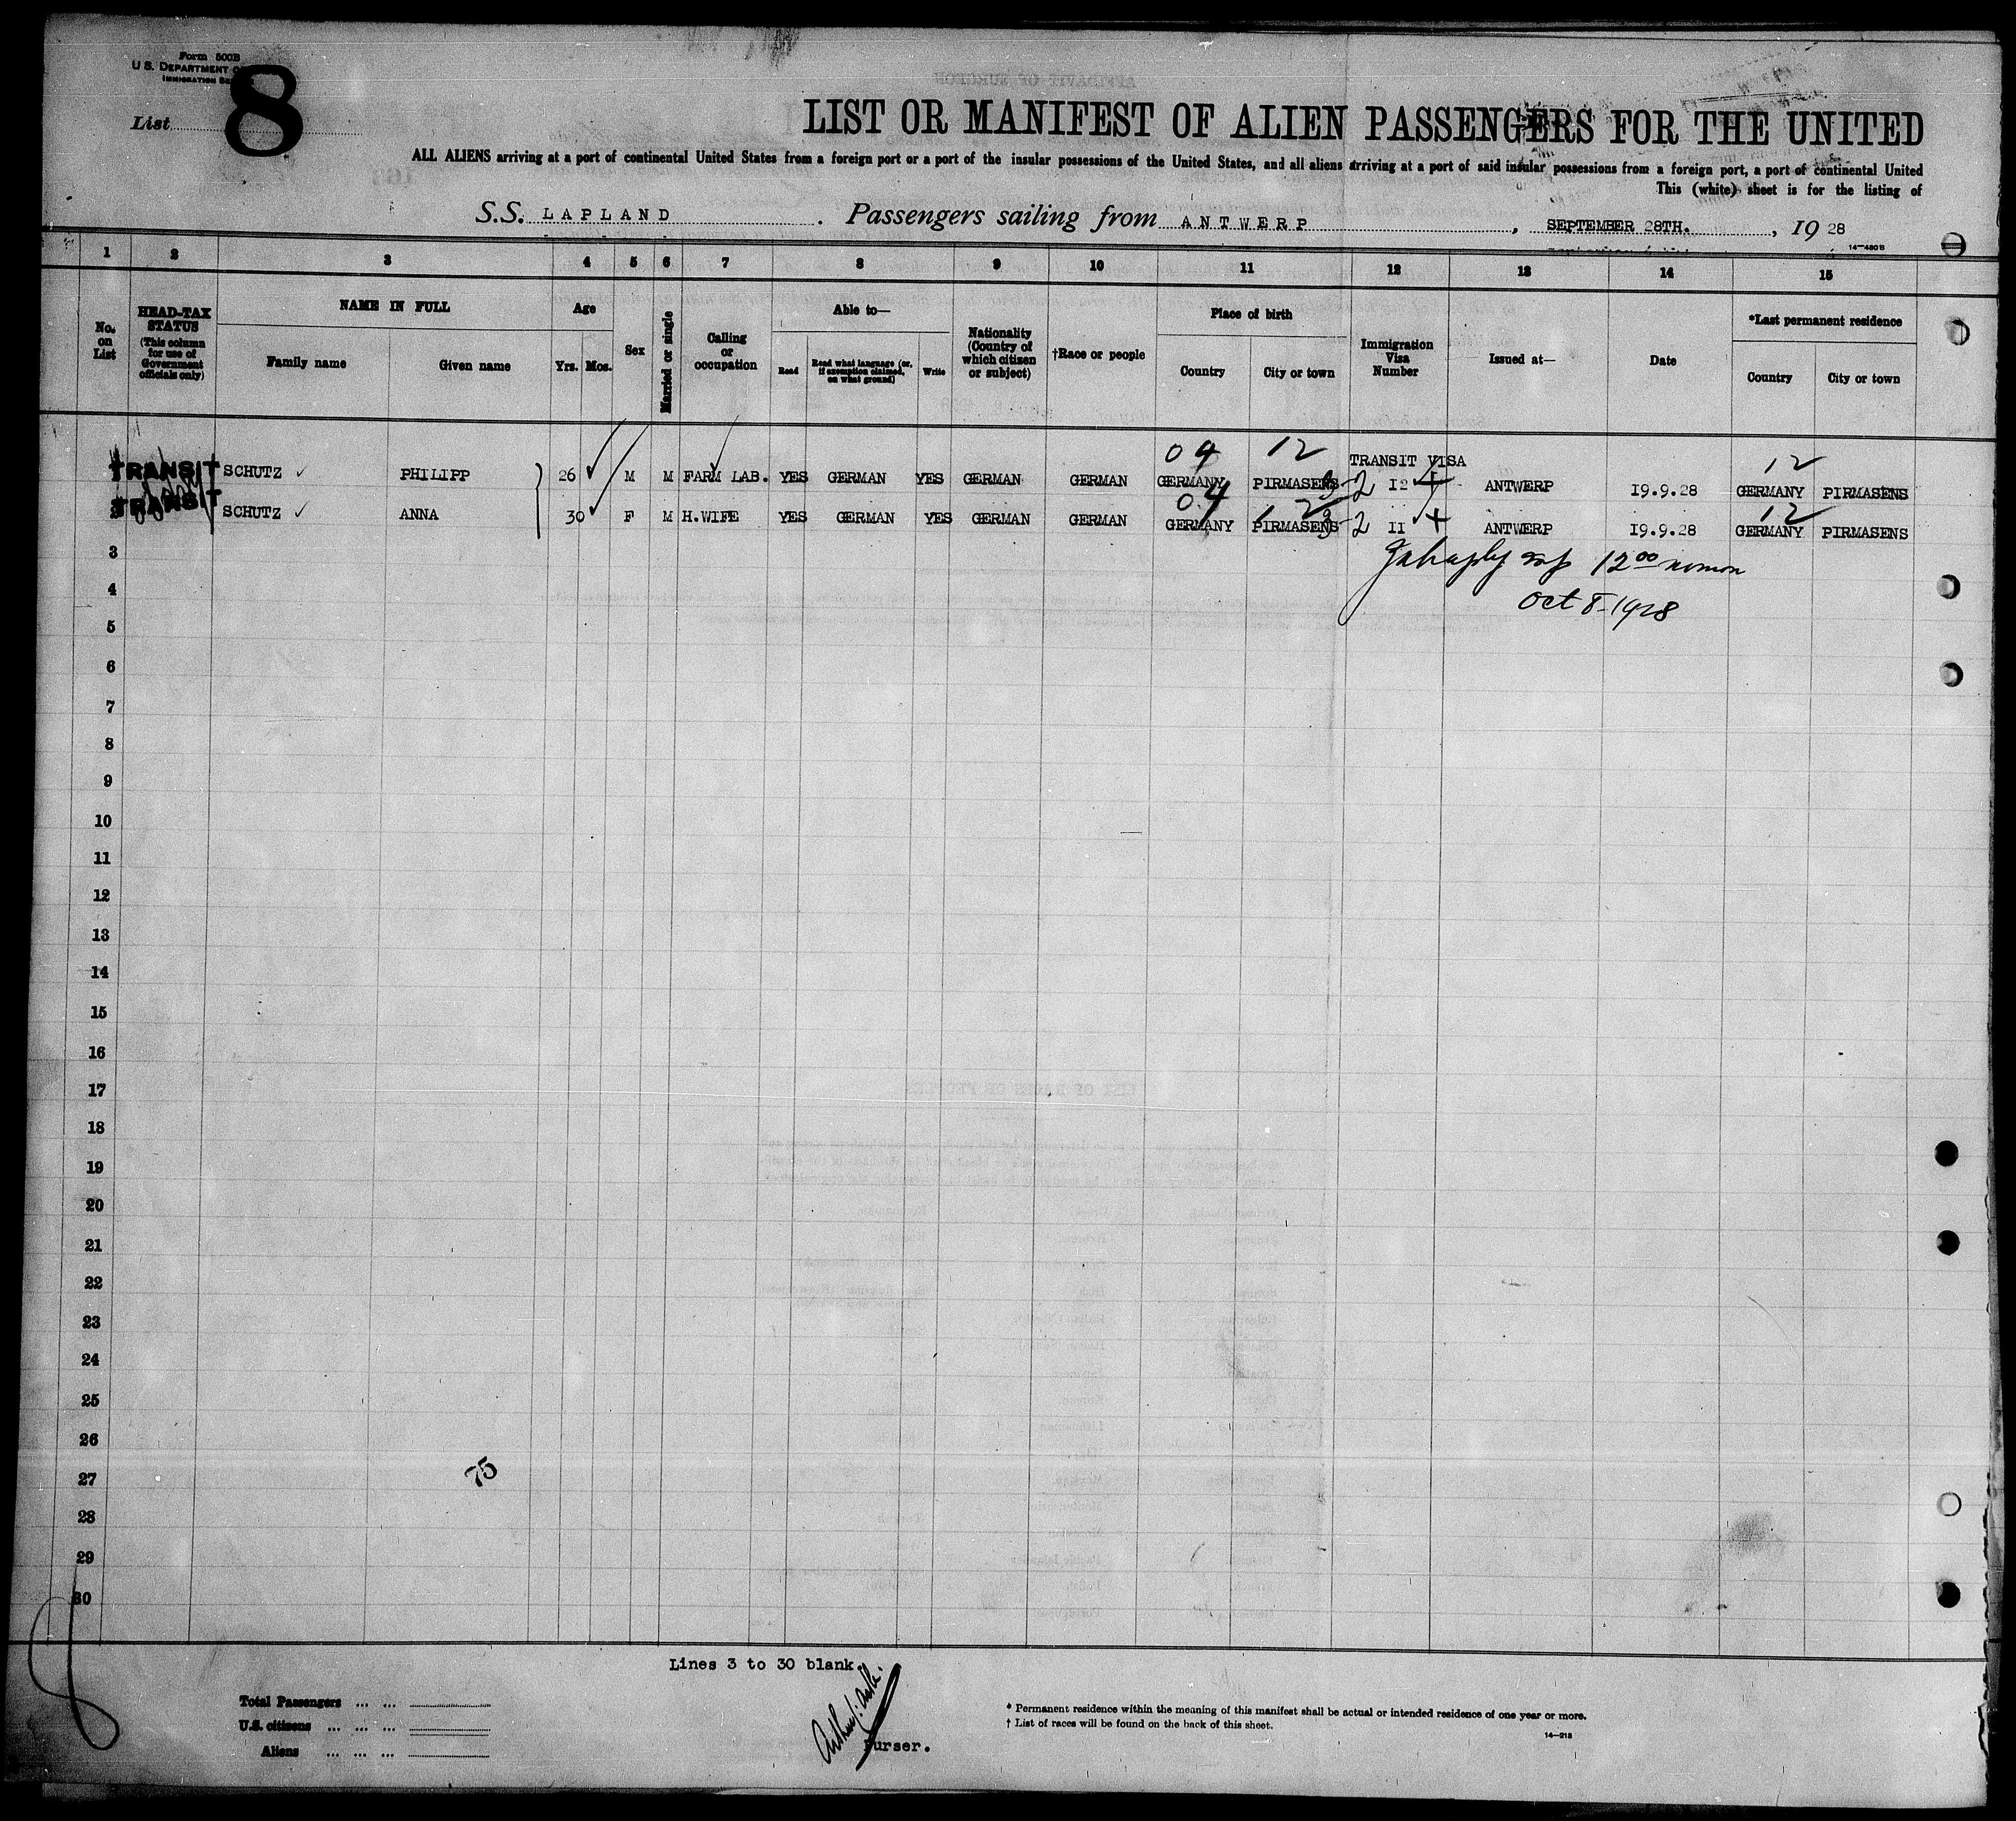 Form 500B
U.S. DEPARTMENT
IMMIGRATION
List 8
LIST OR MANIFEST OF ALIEN PASSENGERS FOR THE UNITED
ALL ALIENS arriving at a port of continental United States from a foreign port or a port of the insular possessions of the United States, and all aliens arriving at a port of said insular possessions from a foreign port, a port of continental United
This (white) sheet is for the listing of
S.S. LAPLAND. Passengers sailing from ANTWERP, SEPTEMBER 28TH., 19 28
14—480B
1 2 3 4 5 6 7 8 9 10 11 12 13 14 15
No. on List
HEAD-TAX STATUS (This column for use of Government officials only)
NAME IN FULL
Family name Given name
Age
Yrs. Mos.
Sex
Married or single
Calling or occupation
Able to—
Read Read what language (or, if exemption claimed, on what ground) Write
Nationality (Country of which citizen or subject)
†Race or people
Place of birth
Country City or town
Immigration Visa Number
Issued at—
Date
*Last permanent residence
Country City or town
04 12 TRANSIT VISA 12
TRANSIT SCHUTZ ✓ PHILIPP 26 ✓ M M FARM LAB. YES GERMAN YES GERMAN GERMAN GERMANY PIRMASENS 3-2 I2 ANTWERP I9.9.28 GERMANY PIRMASENS
04 12 12
2 TRANSIT SCHUTZ ✓ ANNA 30 ✓ F M H.WIFE YES GERMAN YES GERMAN GERMAN GERMANY PIRMASENS 3-2 II ANTWERP I9.9.28 GERMANY PIRMASENS
3
12 00
4
Oct 8-1928
5
6
7
8
9
10
11
12
13
14
15
16
17
18
19
20
21
22
23
24
25
26
27
75
28
29
30
8
Lines 3 to 30 blank
Total Passengers ... ...
U.S. citizens ... ... ...
Aliens ... ... ...
Purser.
* Permanent residence within the meaning of this manifest shall be actual or intended residence of one year or more.
† List of races will be found on the back of this sheet.
14—218